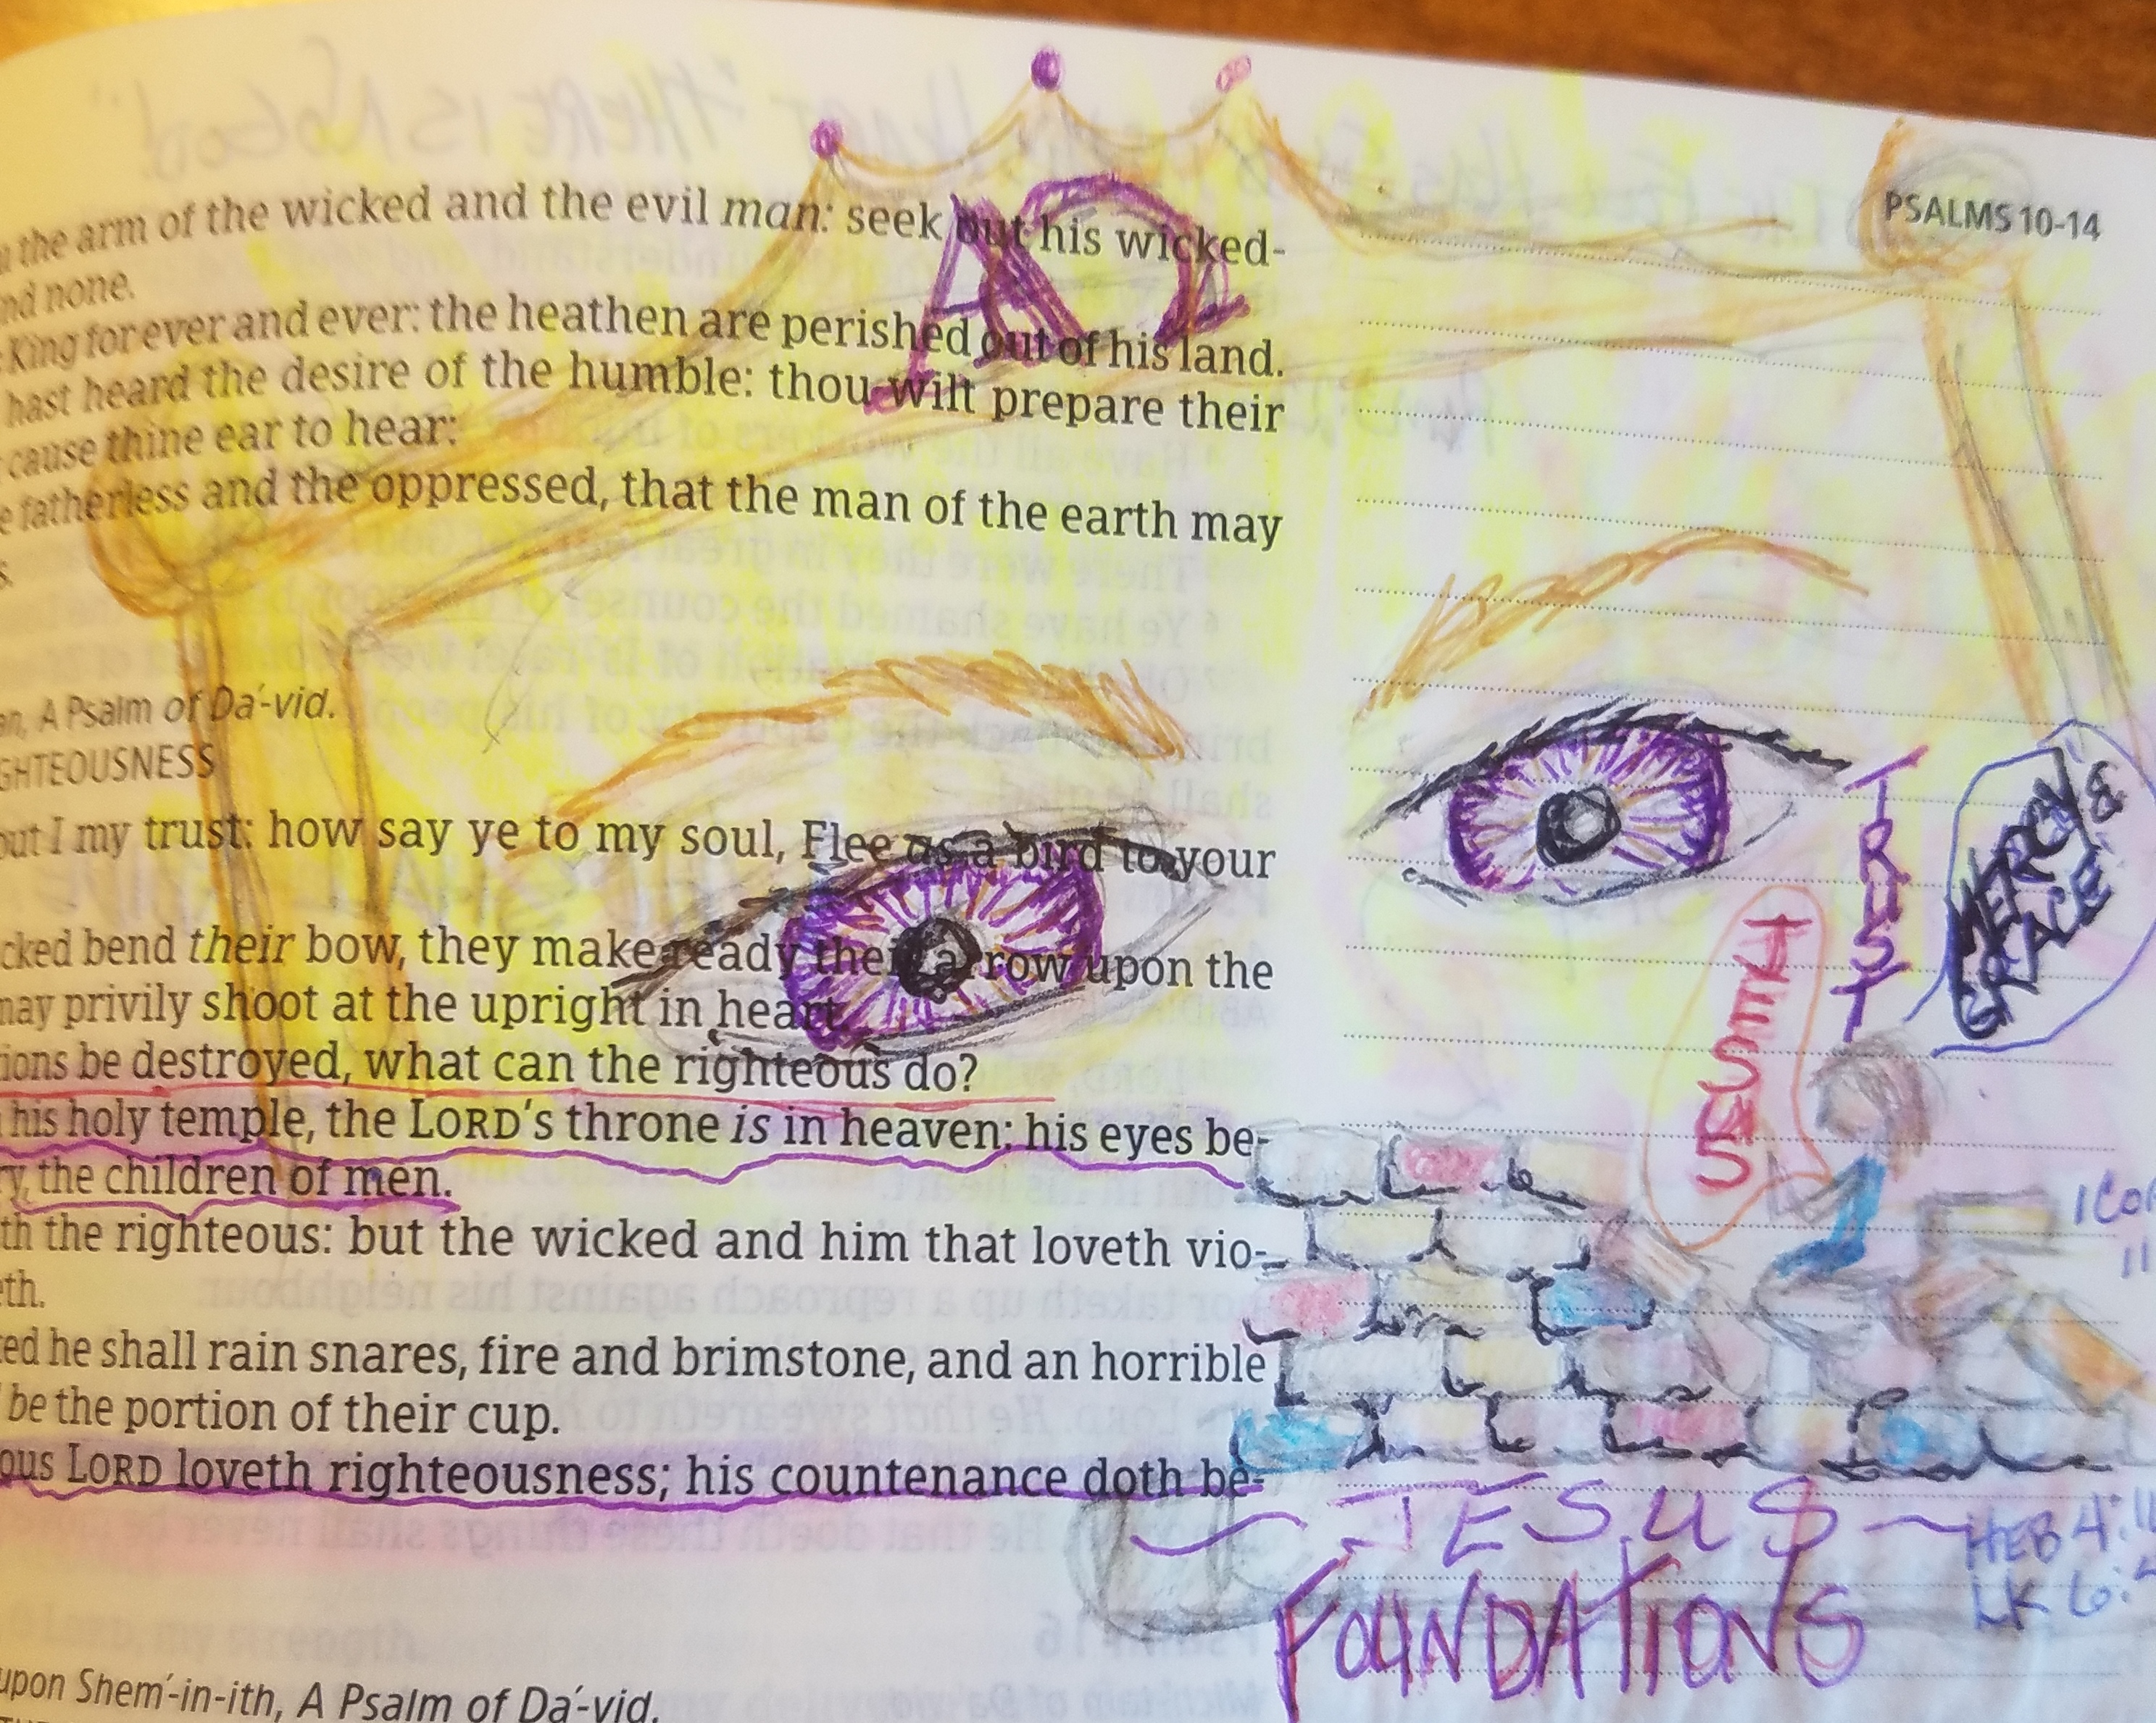 PSALMS 10-14
the arm of the wicked and the evil man: seek out his wicked-
nd none.
King for ever and ever: the heathen are perished out of his land.
hast heard the desire of the humble: thou wilt prepare their
cause thine ear to hear:
e fatherless and the oppressed, that the man of the earth may
s.
an, A Psalm of Da´-vid.
GHTEOUSNESS
out I my trust: how say ye to my soul, Flee as a bird to your
cked bend their bow, they make ready their arrow upon the
may privily shoot at the upright in heart.
ions be destroyed, what can the righteous do?
his holy temple, the LORD's throne is in heaven: his eyes be-
ry, the children of men.
th the righteous: but the wicked and him that loveth vio-
eth.
ed he shall rain snares, fire and brimstone, and an horrible
be the portion of their cup.
ous LORD loveth righteousness; his countenance doth be-
upon Shem´-in-ith, A Psalm of Da´-vid.
ΑΩ
TRUST
MERCY &
GRACE
1 Cor
11
JESUS
FOUNDATIONS
HEB 4:1
LK 6: